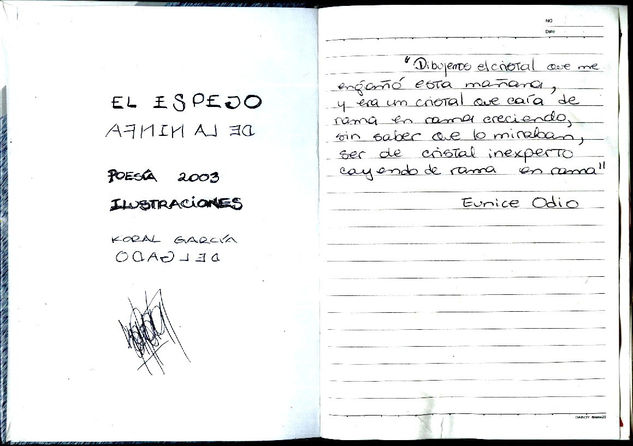 EL ESPEJO
DE LA NINFA
POESÍA 2003
ILUSTRACIONES
KORAL GARCÍA
DELGADO
NO
"Dibujemos el cristal que me
engañó esta mañana,
y era un cristal que caía de
rama en rama creciendo,
sin saber que lo miraban,
ser de cristal inexperto
cayendo de rama en rama"
Eunice Odio